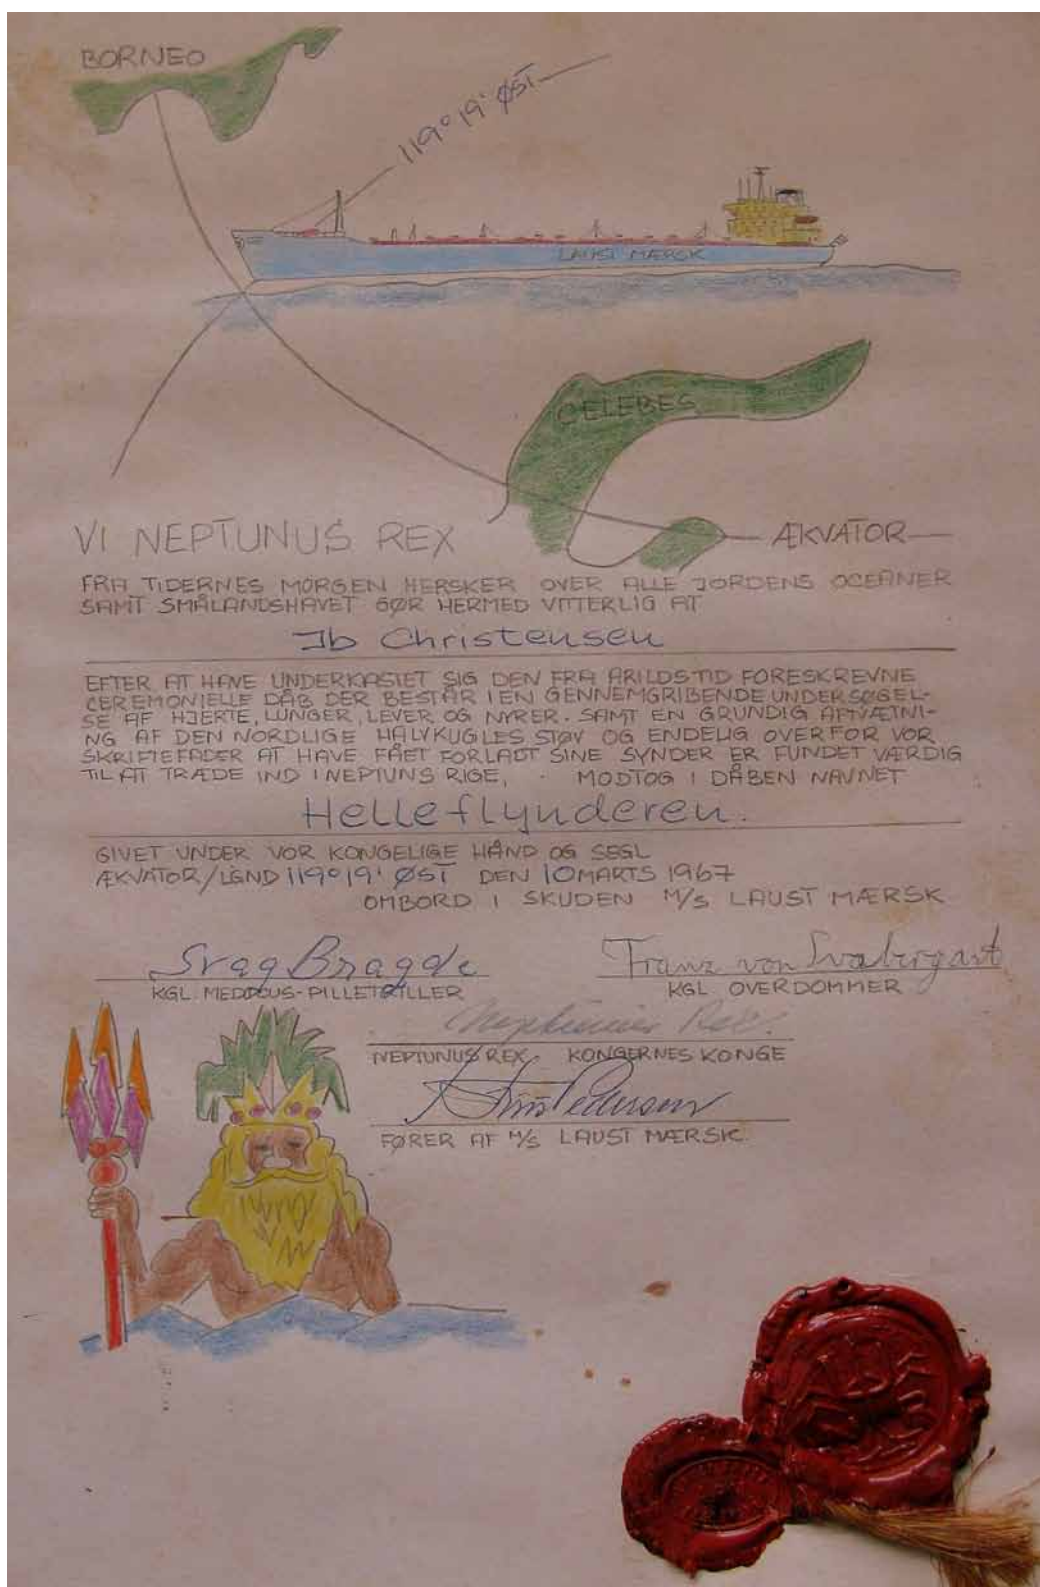 BORNEO
119° 19' ØST
LAUST MÆRSK
CELEBES
ÆKVATOR
VI NEPTUNUS REX
FRA TIDERNES MORGEN HERSKER OVER ALLE JORDENS OCEANER
SAMT SMÅLANDSHAVET GØR HERMED VITTERLIG AT
Ib Christensen
EFTER AT HAVE UNDERKASTET SIG DEN FRA ARILDSTID FORESKREVNE
CEREMONIELLE DÅB DER BESTÅR I EN GENNEMGRIBENDE UNDERSØGEL-
SE AF HJERTE, LUNGER, LEVER OG NYRER. SAMT EN GRUNDIG AFTVÆTNI-
NG AF DEN NORDLIGE HALVKUGLES STØV OG ENDELIG OVERFOR VOR
SKRIFTEFADER AT HAVE FÅET FORLADT SINE SYNDER ER FUNDET VÆRDIG
TIL AT TRÆDE IND I NEPTUNS RIGE, MODTOG I DÅBEN NAVNET
Helleflynderen.
GIVET UNDER VOR KONGELIGE HÅND OG SEGL
ÆKVATOR/LGND 119° 19' ØST DEN 10 MARTS 1967
OMBORD I SKUDEN M/S LAUST MÆRSK
Franz von
KGL. OVERDOMMER
KGL. MEDICUS-PILLETRILLER
Neptunus Rex.
NEPTUNUS REX, KONGERNES KONGE
Pedersen
FØRER AF M/S LAUST MÆRSK